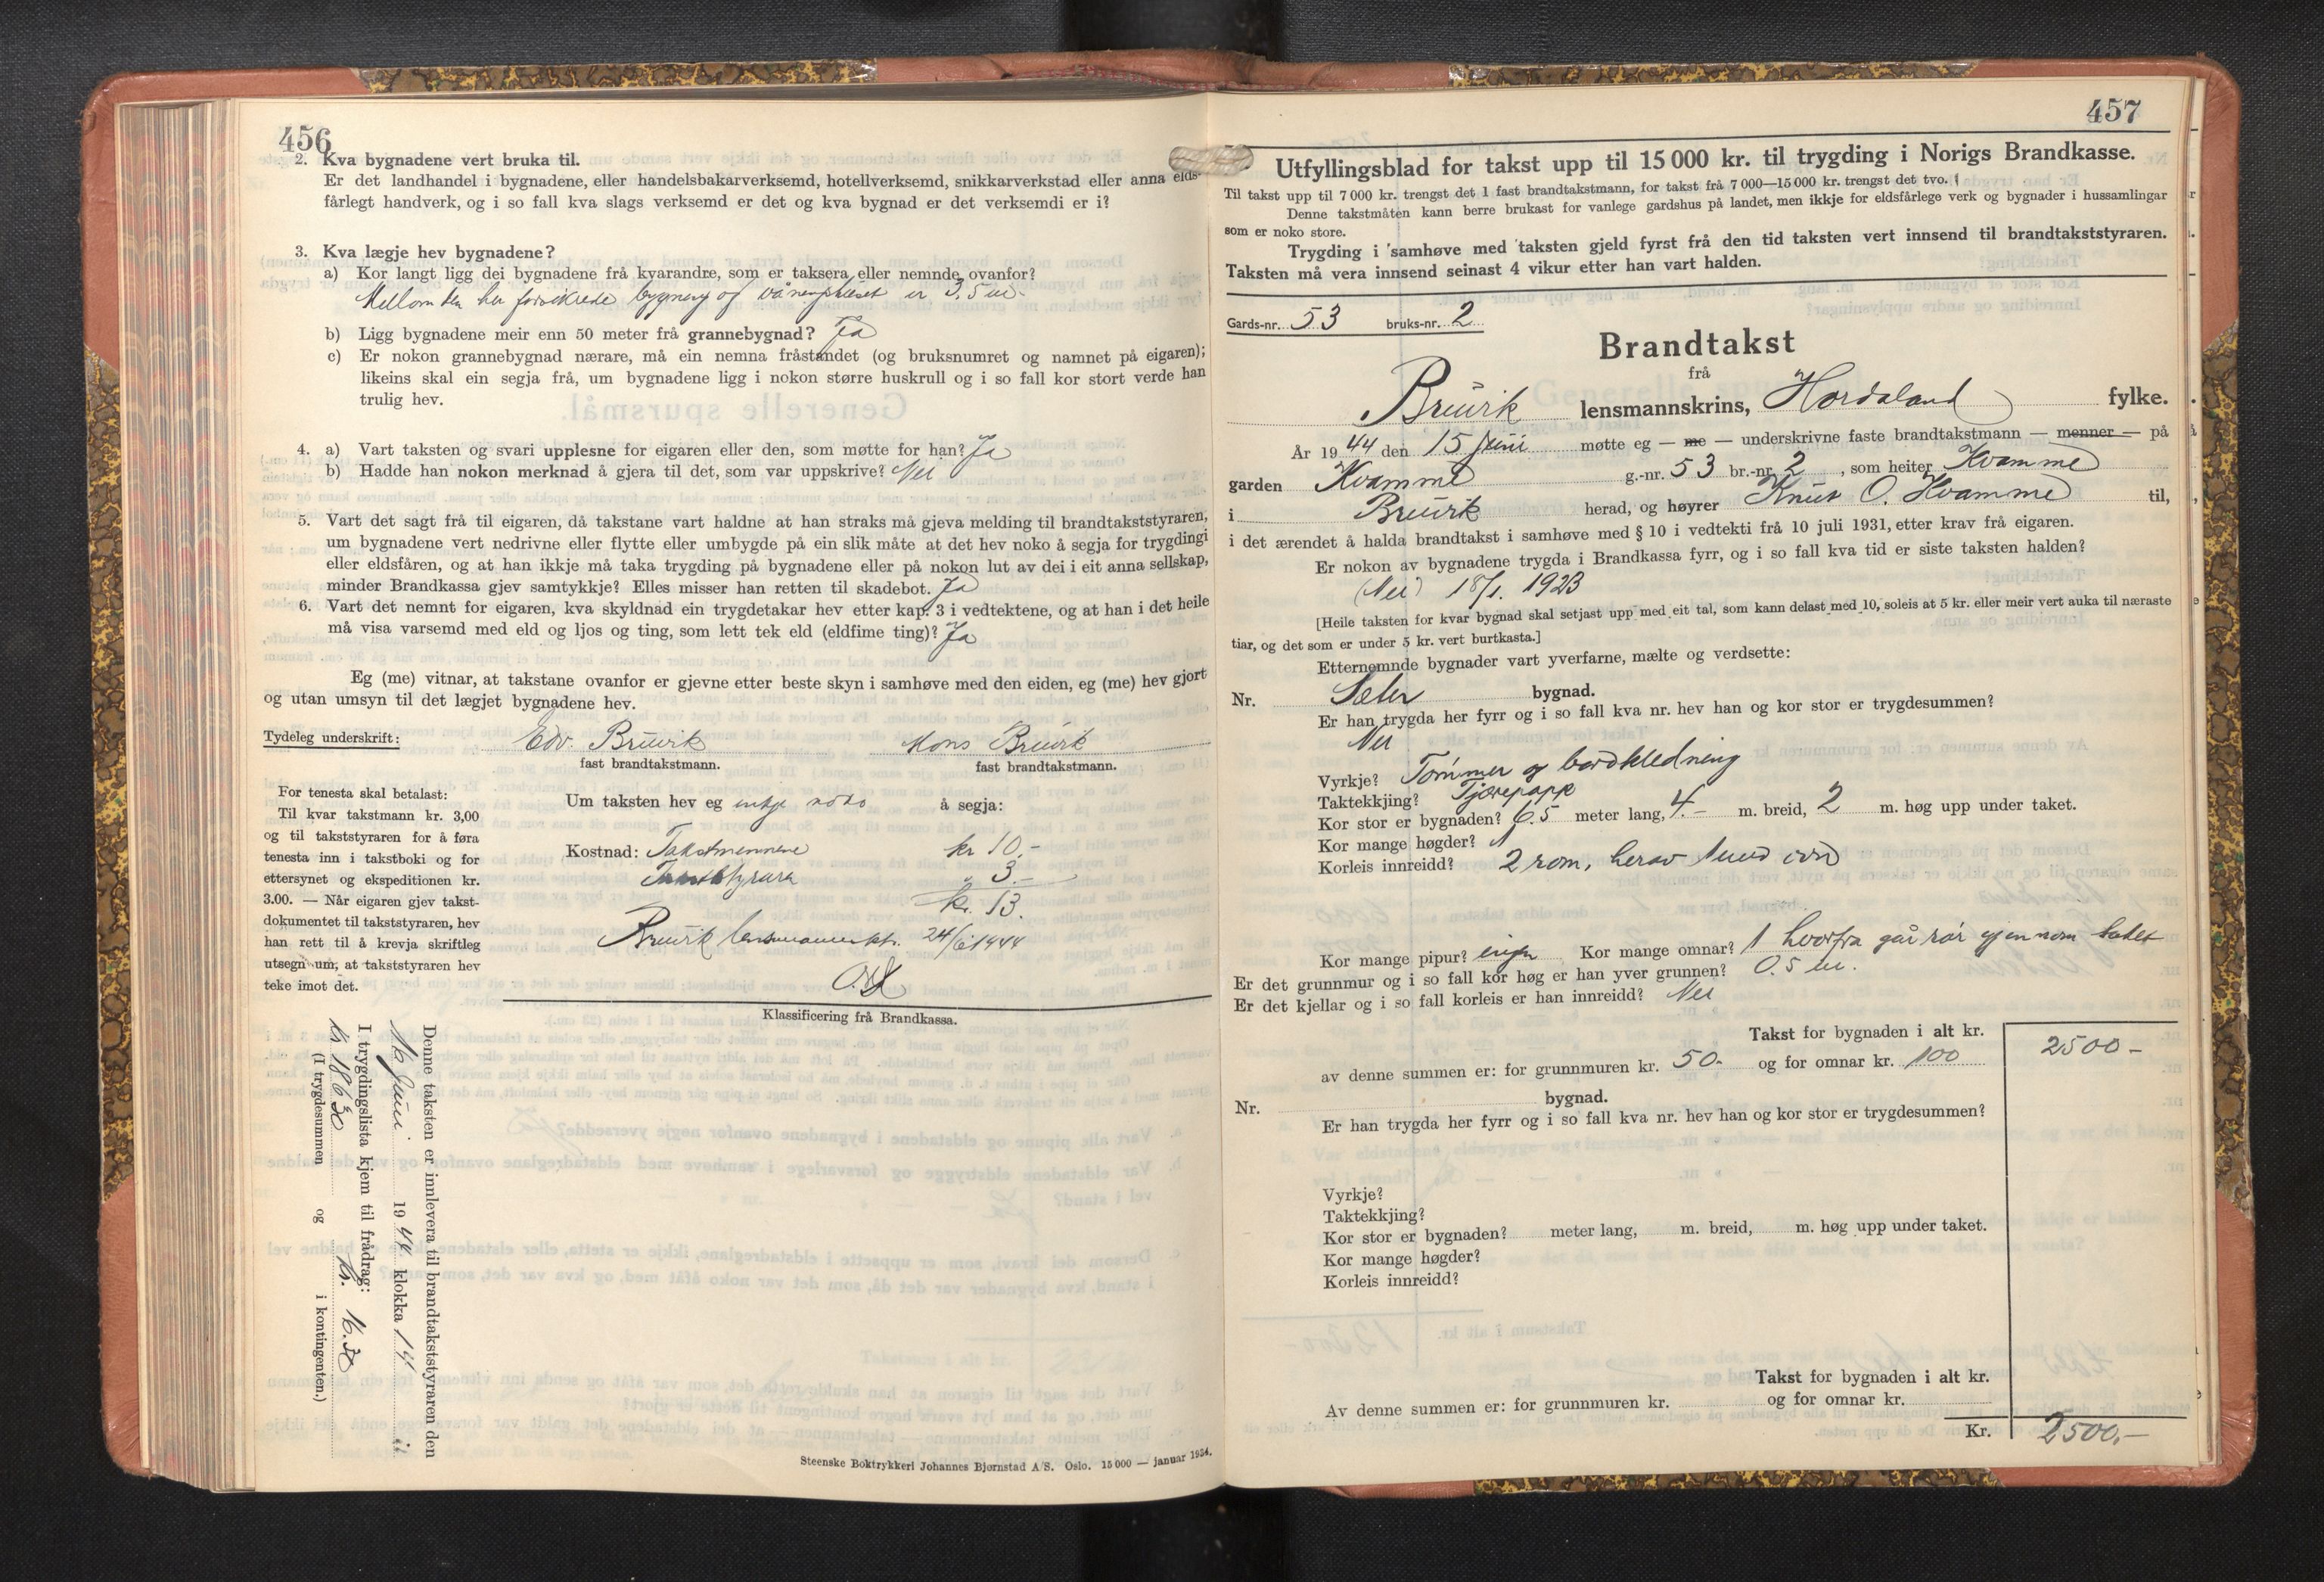 456
2. Kva bygnadene vert bruka til.
Er det landhandel i bygnadene, eller handelsbakarverksemd, hotellverksemd, snikkarverkstad eller anna elds-
fårlegt handverk, og i so fall kva slags verksemd er det og kva bygnad er det verksemdi er i?
3. Kva lægje hev bygnadene?
a) Kor langt ligg dei bygnadene frå kvarandre, som er taksera eller nemnde ovanfor?
Mellom den her forsikrede bygning og våningshuset er 3,5 m.
b) Ligg bygnadene meir enn 50 meter frå grannebygnad? Ja
c) Er nokon grannebygnad nærare, må ein nemna fråstandet (og bruksnumret og namnet på eigaren);
likeins skal ein segja frå, um bygnadene ligg i nokon større huskrull og i so fall kor stort verde han
trulig hev.
4. a) Vart taksten og svari upplesne for eigaren eller den, som møtte for han? Ja
b) Hadde han nokon merknad å gjera til det, som var uppskrive? Nei
5. Vart det sagt frå til eigaren, då takstane vart haldne at han straks må gjeva melding til brandtakststyraren,
um bygnadene vert nedrivne eller flytte eller umbygde på ein slik måte at det hev noko å segja for trygdingi
eller eldsfåren, og at han ikkje må taka trygding på bygnadene eller på nokon lut av dei i eit anna sellskap,
minder Brandkassa gjev samtykkje? Elles misser han retten til skadebot. Ja
6. Vart det nemnt for eigaren, kva skyldnad ein trygdetakar hev etter kap. 3 i vedtektene, og at han i det heile
må visa varsemd med eld og ljos og ting, som lett tek eld (eldfime ting)? Ja
Eg (me) vitnar, at takstane ovanfor er gjevne etter beste skyn i samhøve med den eiden, eg (me) hev gjort
og utan umsyn til det lægjet bygnadene hev.
Tydeleg underskrift: Edv. Bruvik Mons Bruvik
fast brandtakstmann. fast brandtakstmann.
For tenesta skal betalast:
Til kvar takstmann kr. 3,00
og til takststyraren for å føra
tenesta inn i takstboki og for
ettersynet og ekspeditionen kr.
3.00. — Når eigaren gjev takst-
dokumentet til takststyraren, hev
han rett til å krevja skriftleg
utsegn um, at takststyraren hev
teke imot det.
Um taksten hev eg inkje noko å segja:
Kostnad: Takstmennene kr 10.-
Takststyrara " 3.-
kr. 13.
Bruvik lensmannsktr. 24/6 1944
Klassificering frå Brandkassa.
Denne taksten er innlevera til brandtakststyraren den
16 juni 1944 klokka 14
I trygdingslista kjem til frådrag:
kr 1863 kr. 16.30
(I trygdesummen og i kontingenten.)
Steenske Boktrykkeri Johannes Bjørnstad A/S. Oslo. 15 000 — januar 1934.
457
Utfyllingsblad for takst upp til 15 000 kr. til trygding i Norigs Brandkasse.
Til takst upp til 7 000 kr. trengst det 1 fast brandtakstmann, for takst frå 7 000—15 000 kr. trengst det tvo.
Denne takstmåten kann berre brukast for vanlege gardshus på landet, men ikkje for eldsfårlege verk og bygnader i hussamlingar
som er noko store.
Trygding i samhøve med taksten gjeld fyrst frå den tid taksten vert innsend til brandtakststyraren.
Taksten må vera innsend seinast 4 vikur etter han vart halden.
Gards-nr. 53 bruks-nr. 2
Brandtakst
frå
Bruvik lensmannskrins, Hordaland fylke.
År 1944 den 15 juni møtte eg — me — underskrivne faste brandtakstmann — menner — på
garden Kvamme g.-nr. 53 br.-nr. 2, som heiter Kvamme
i Bruvik herad, og høyrer Knut O. Kvamme til,
i det ærendet å halda brandtakst i samhøve med § 10 i vedtekti frå 10 juli 1931, etter krav frå eigaren.
Er nokon av bygnadene trygda i Brandkassa fyrr, og i so fall kva tid er siste taksten halden?
(Nei) 18/1. 1923
[Heile taksten for kvar bygnad skal setjast upp med eit tal, som kann delast med 10, soleis at 5 kr. eller meir vert auka til næraste
tiar, og det som er under 5 kr. vert burtkasta.]
Etternemnde bygnader vart yverfarne, mælte og verdsette:
Nr. Seter bygnad.
Er han trygda her fyrr og i so fall kva nr. hev han og kor stor er trygdesummen?
Nei
Vyrkje? Tømmer og bordkledning
Taktekkjing? Tjærepapp
Kor stor er bygnaden? 6.5 meter lang, 4.- m. breid, 2 m. høg upp under taket.
Kor mange høgder? 1
Korleis innreidd? 2 rom, herav 1 med ovn
Kor mange pipur? ingen Kor mange omnar? 1 hvorfra går rør gjennom taket
Er det grunnmur og i so fall kor høg er han yver grunnen? 0.5 m.
Er det kjellar og i so fall korleis er han innreidd? Nei
Takst for bygnaden i alt kr. 2500 -
av denne summen er: for grunnmuren kr. 50- og for omnar kr. 100
Nr. bygnad.
Er han trygda her fyrr og i so fall kva nr. hev han og kor stor er trygdesummen?
Vyrkje?
Taktekkjing?
Kor stor er bygnaden? meter lang, m. breid, m. høg upp under taket.
Kor mange høgder?
Korleis innreidd?
Takst for bygnaden i alt kr.
Av denne summen er: for grunnmuren kr. og for omnar kr.
Kr. 2500.-